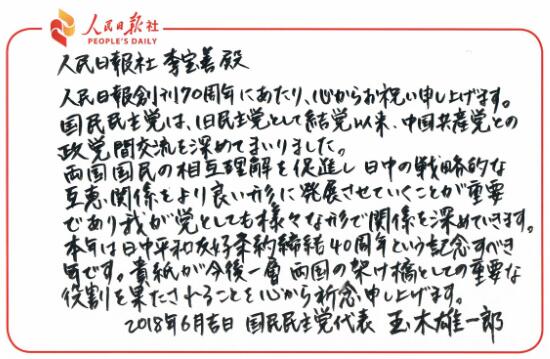 人民日报社
PEOPLE'S DAILY
人民日報社 李宝善殿
人民日報創刊70周年にあたり、心からお祝い申し上げます。
国民民主党は、旧民主党として結党以来、中国共産党との
政党間交流を深めてまいりました。
両国国民の相互理解を促進し 日中の戦略的な
互恵関係をより良い形に発展させていくことが重要
であり我が党としても様々な形で関係を深めていきます。
本年は日中平和友好条約締結40周年という記念すべき
年です。貴紙が今後一層 両国の架け橋としての重要な
役割を果たされることを心から祈念申し上げます。
2018年6月吉日 国民民主党代表 玉木雄一郎